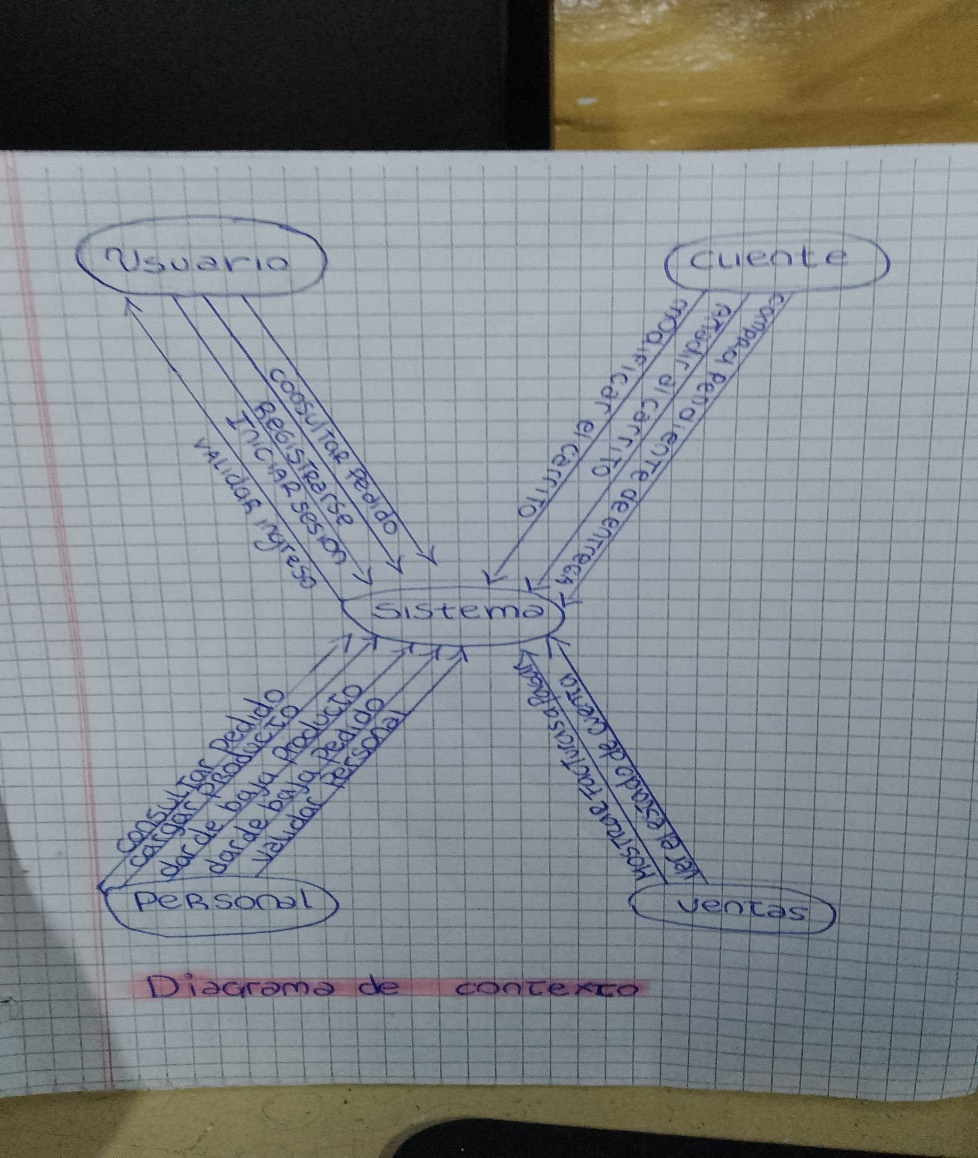 Usuario
cliente
consultar pedido
Registrarse
Iniciar sesion
validar ingreso
modificar el carrito
Añadir al carrito
compra pendiente de entrega
sistema
consultar pedido
cargar producto
dar de baja producto
dar de baja pedido
validar personal
Mostrar facturas a pagar
ver el estado de cuenta
Personal
ventas
Diagrama de contexto